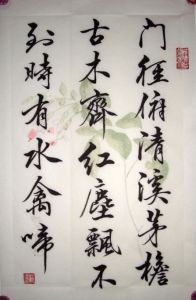 门径俯清溪茅檐
古木齊红塵飄不
到時有水禽啼